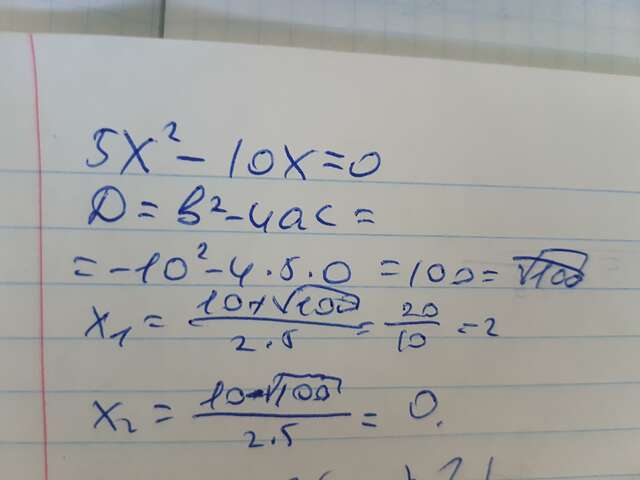 5x² - 10x = 0
D = b² - 4ac =
= -10² - 4 · 5 · 0 = 100 = √100
x₁ = (10+√100)/(2·5) = 20/10 = 2
x₂ = (10-√100)/(2·5) = 0.